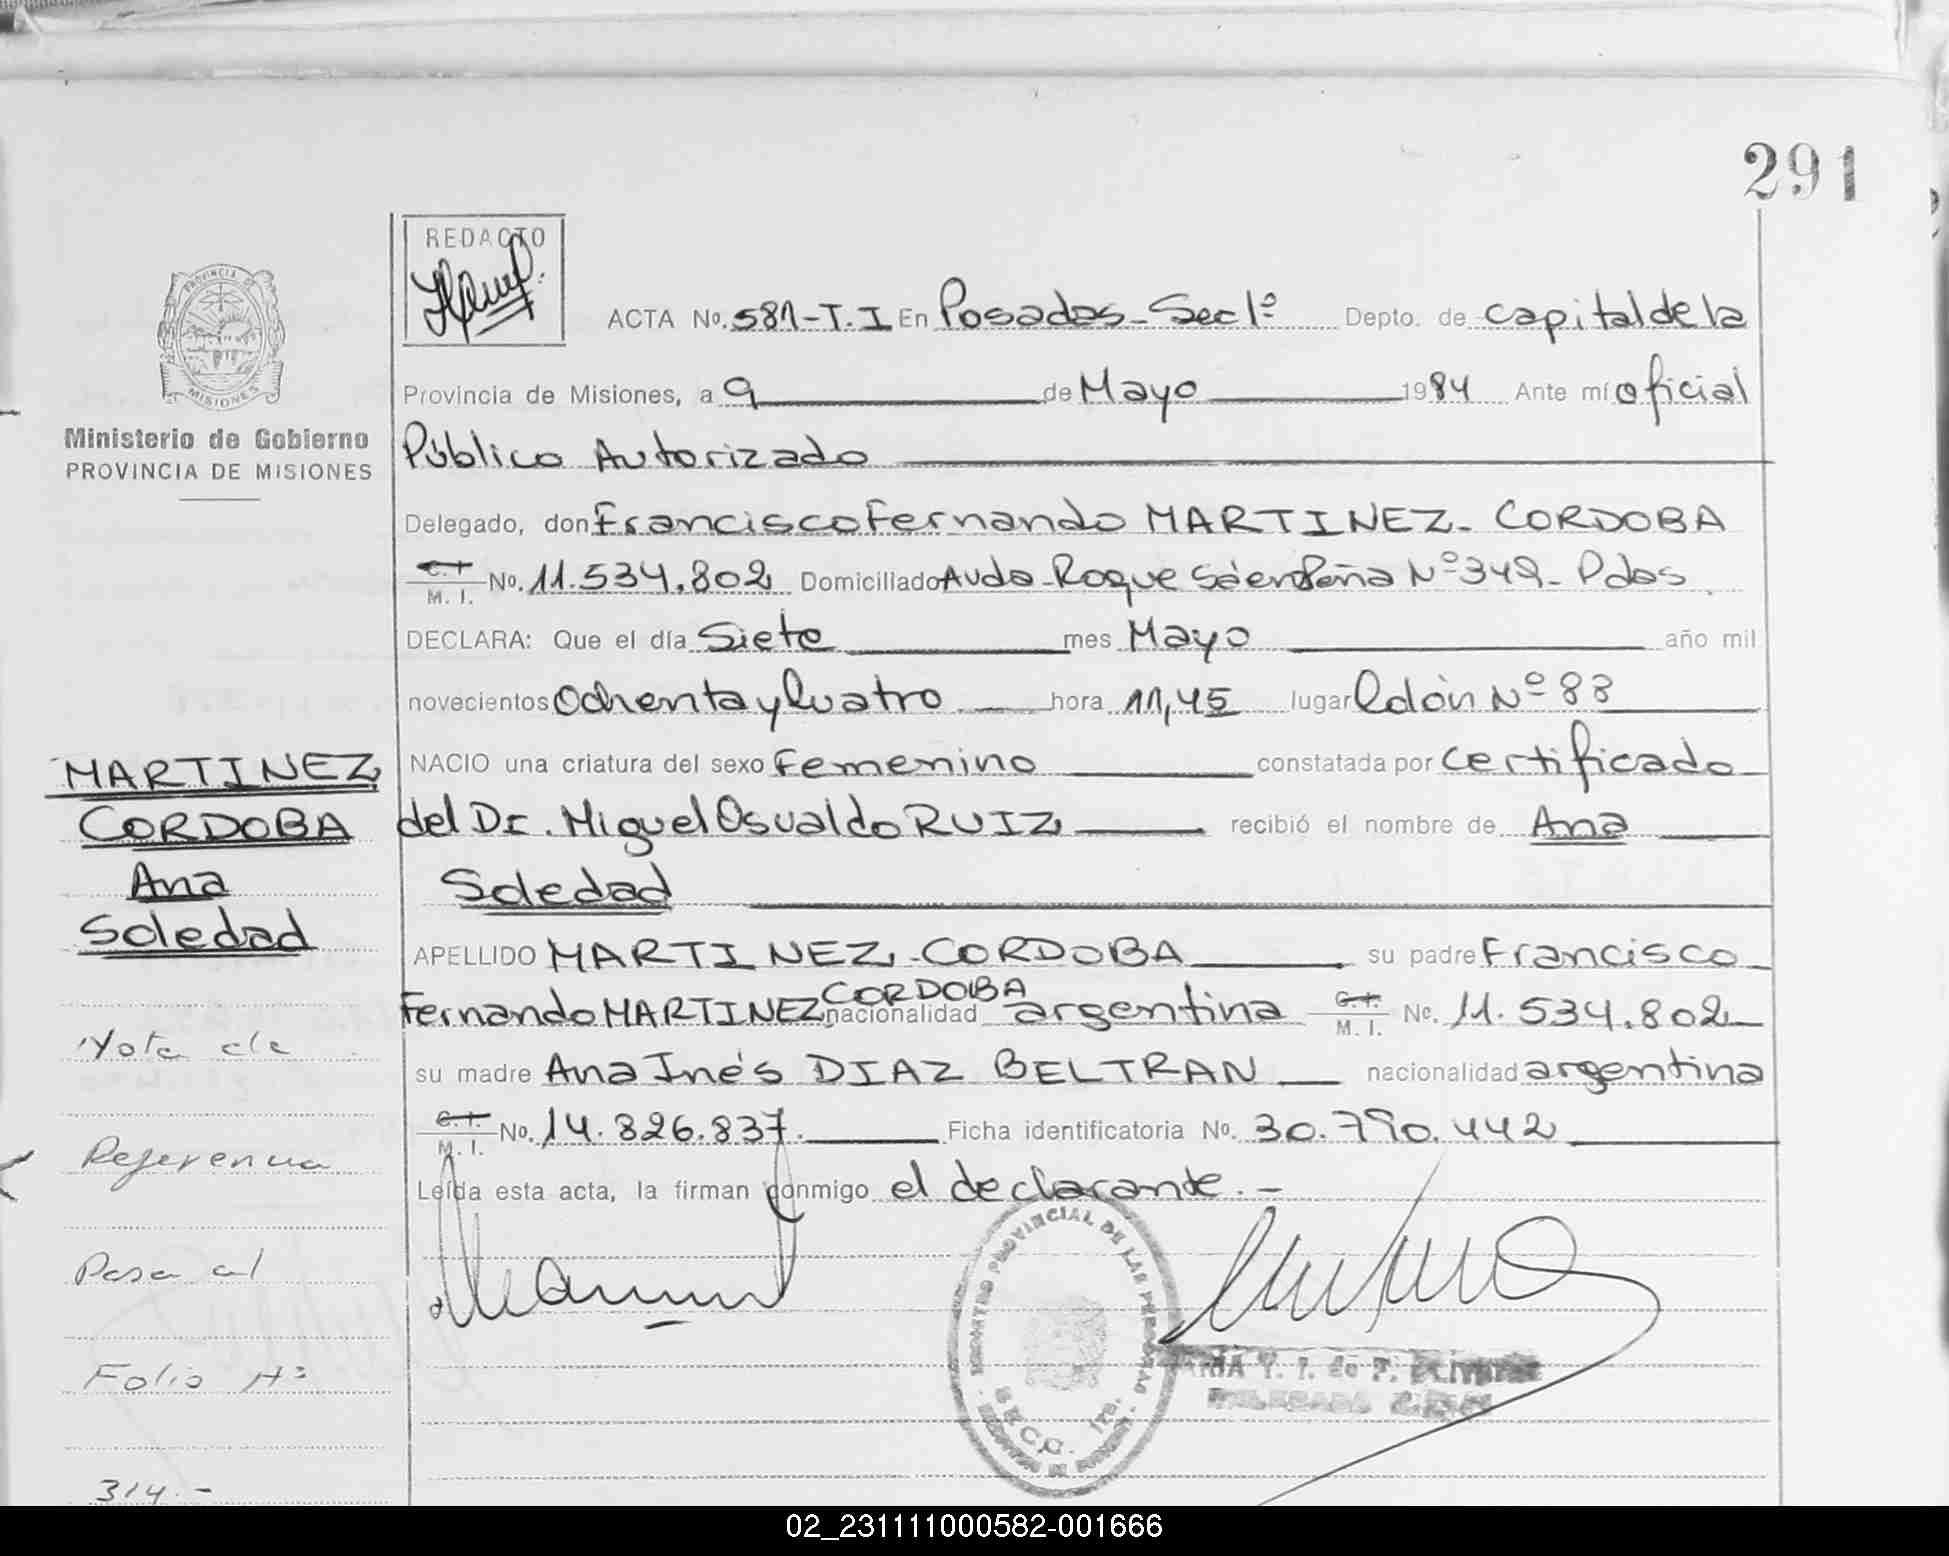 291
REDACTO
PROVINCIA DE
MISIONES
Ministerio de Gobierno
PROVINCIA DE MISIONES
ACTA No. 581-T.I En Posadas-Sec 1º Depto. de capital de la
Provincia de Misiones, a 9 de Mayo 1984 Ante mí oficial
Público Autorizado
Delegado, don Francisco Fernando MARTINEZ-CORDOBA
C.I. M. I. No. 11.534.802 Domiciliado Avda-Roque Sáenz Peña Nº 349-Pdas
DECLARA: Que el día Siete mes Mayo año mil
novecientos Ochenta y Cuatro hora 11,45 lugar Colón Nº 83
NACIO una criatura del sexo Femenino constatada por certificado
del Dr. Miguel Osvaldo RUIZ recibió el nombre de Ana
Soledad
APELLIDO MARTINEZ-CORDOBA su padre Francisco
Fernando MARTINEZ CORDOBA nacionalidad argentina C.I. M. I. No. 11.534.802
su madre Ana Inés DIAZ BELTRAN nacionalidad argentina
C.I. M. I. No. 14.826.837. Ficha identificatoria No. 30.790.442
Leída esta acta, la firman conmigo el declarante.-
MARTINEZ
CORDOBA
Ana
Soledad
Nota de
Referencia
Pasa al
Folio Nº
314.-
PROVINCIAL DE LAS PERSONAS
SECC. 1ra.
02_231111000582-001666